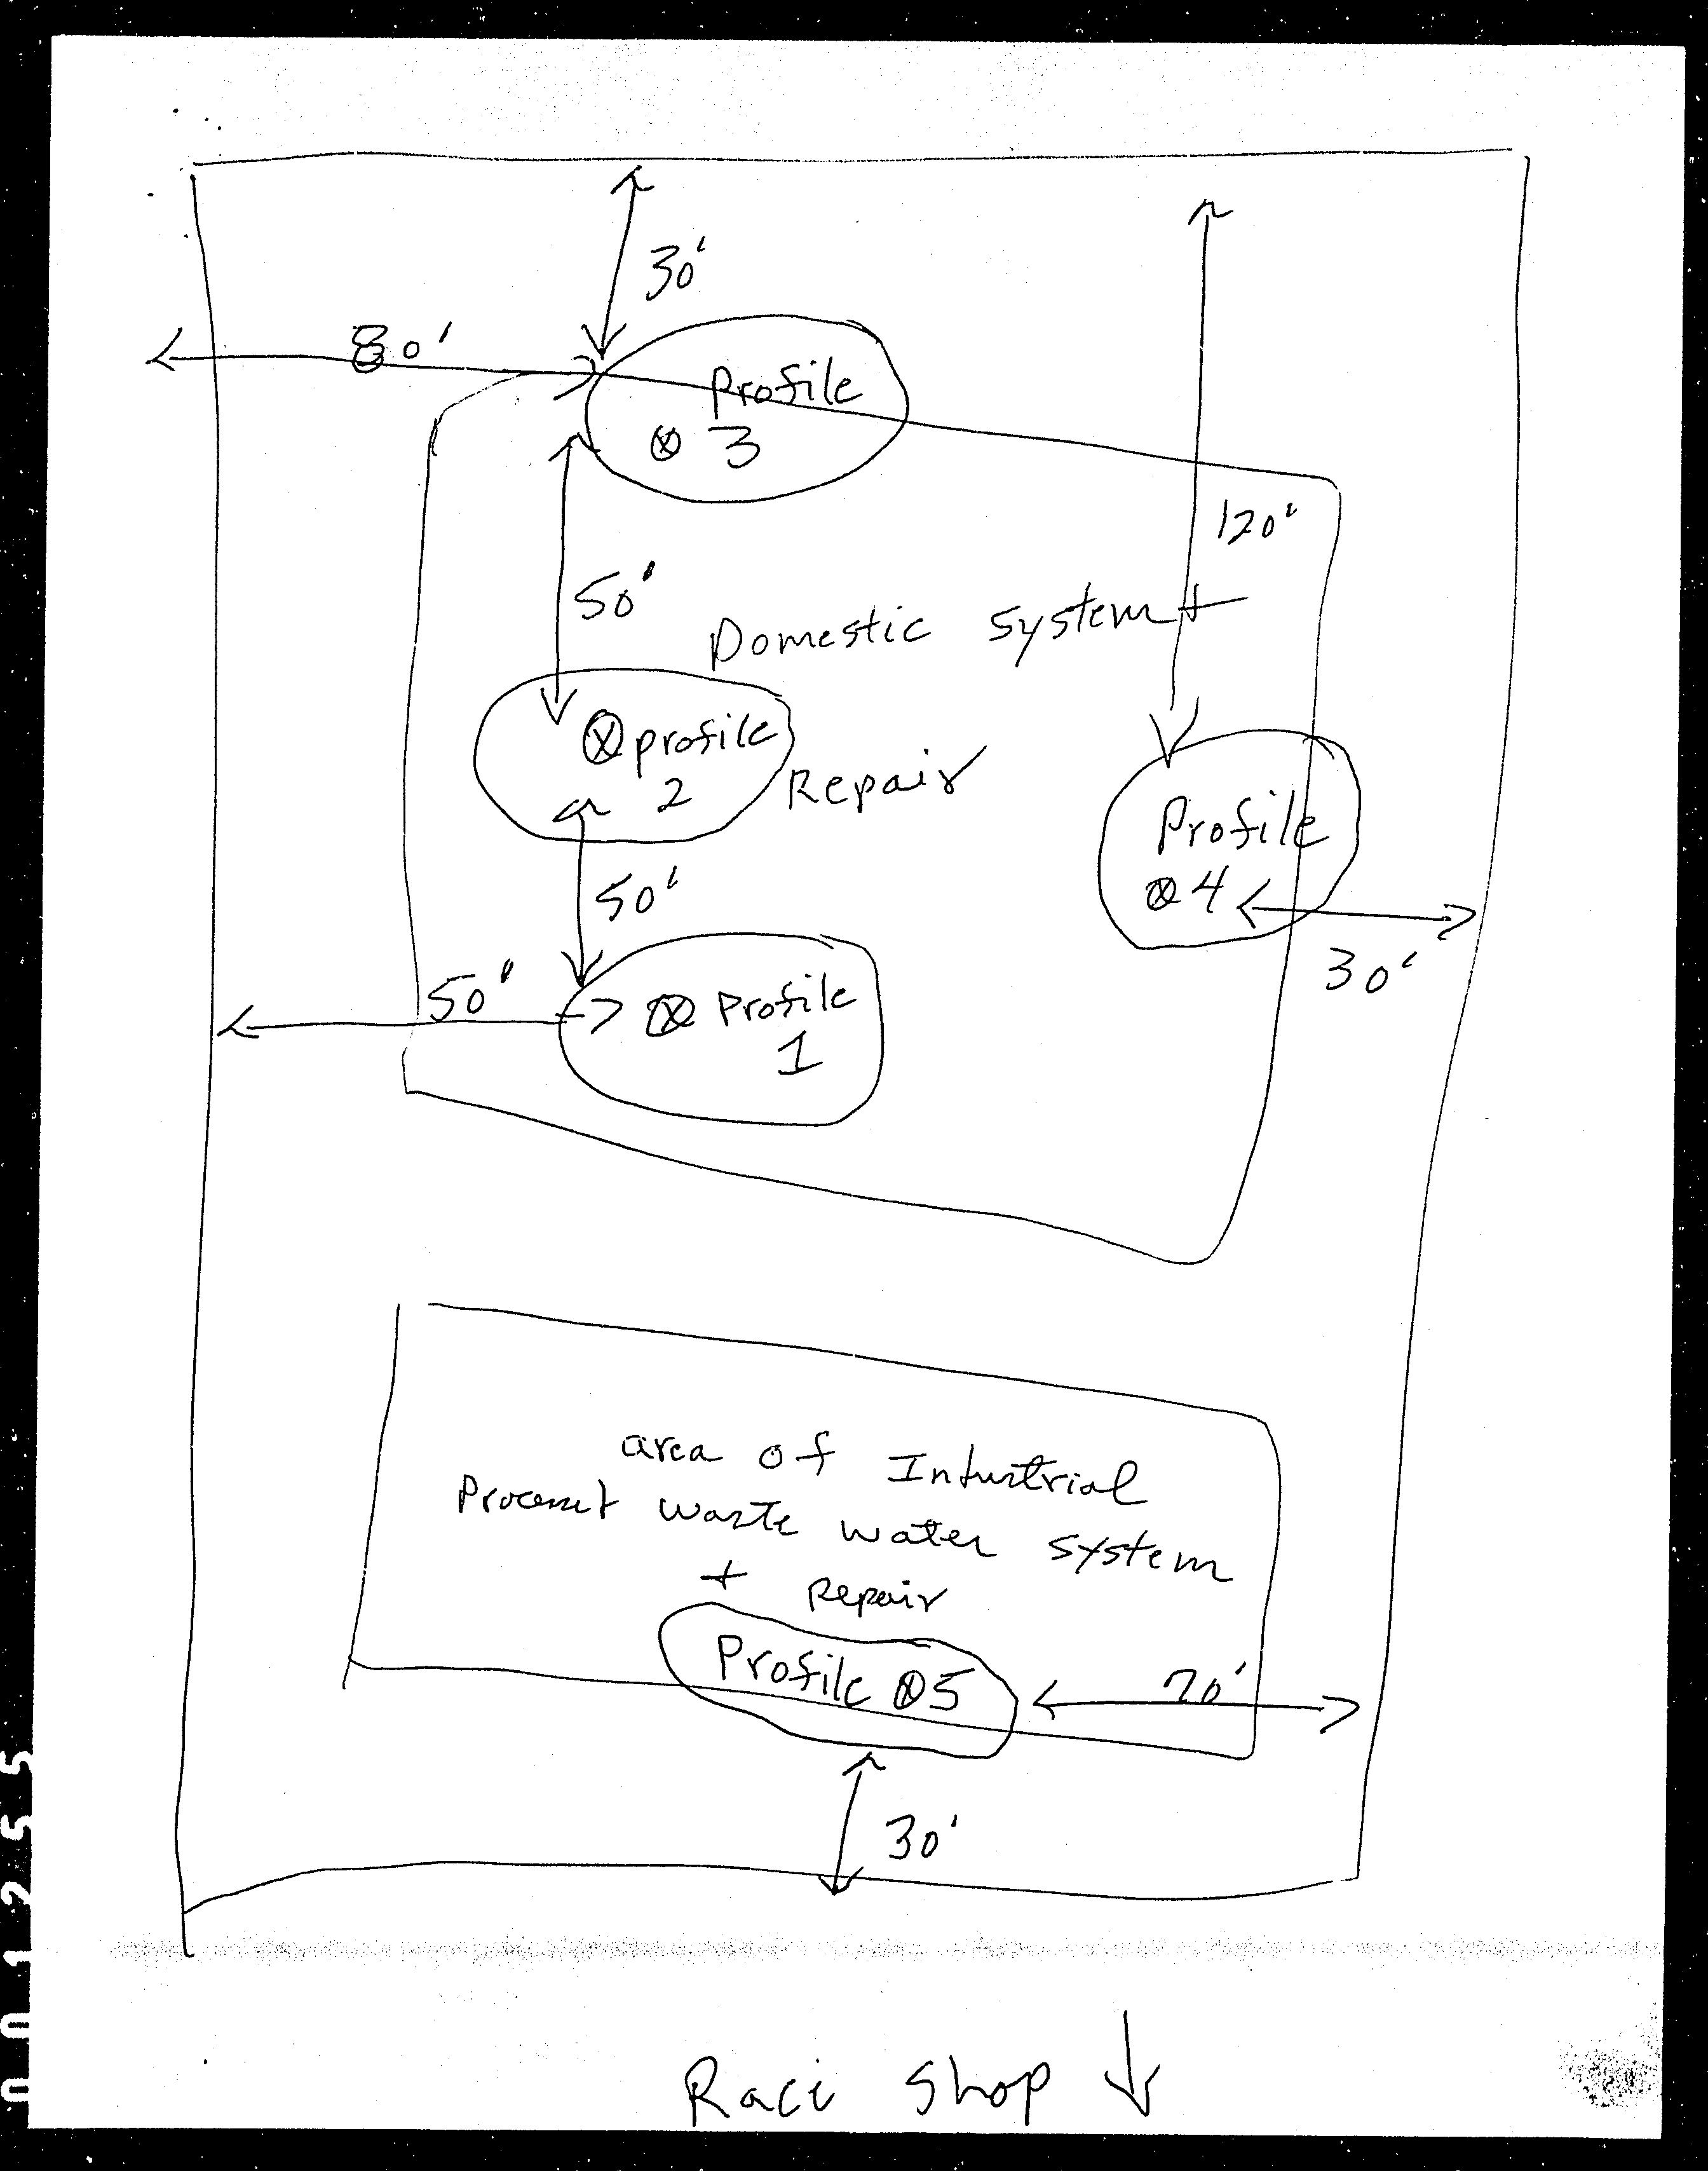 30'
80'
Profile
⊗ 3
120'
50'
Domestic system +
⊗ profile
2
Repair
Profile
⊗ 4
50'
30'
50'
⊗ Profile
1
area of Industrial
waste water system
+ repair
Profile ⊗ 5
70'
30'
Race Shop ↓
001255